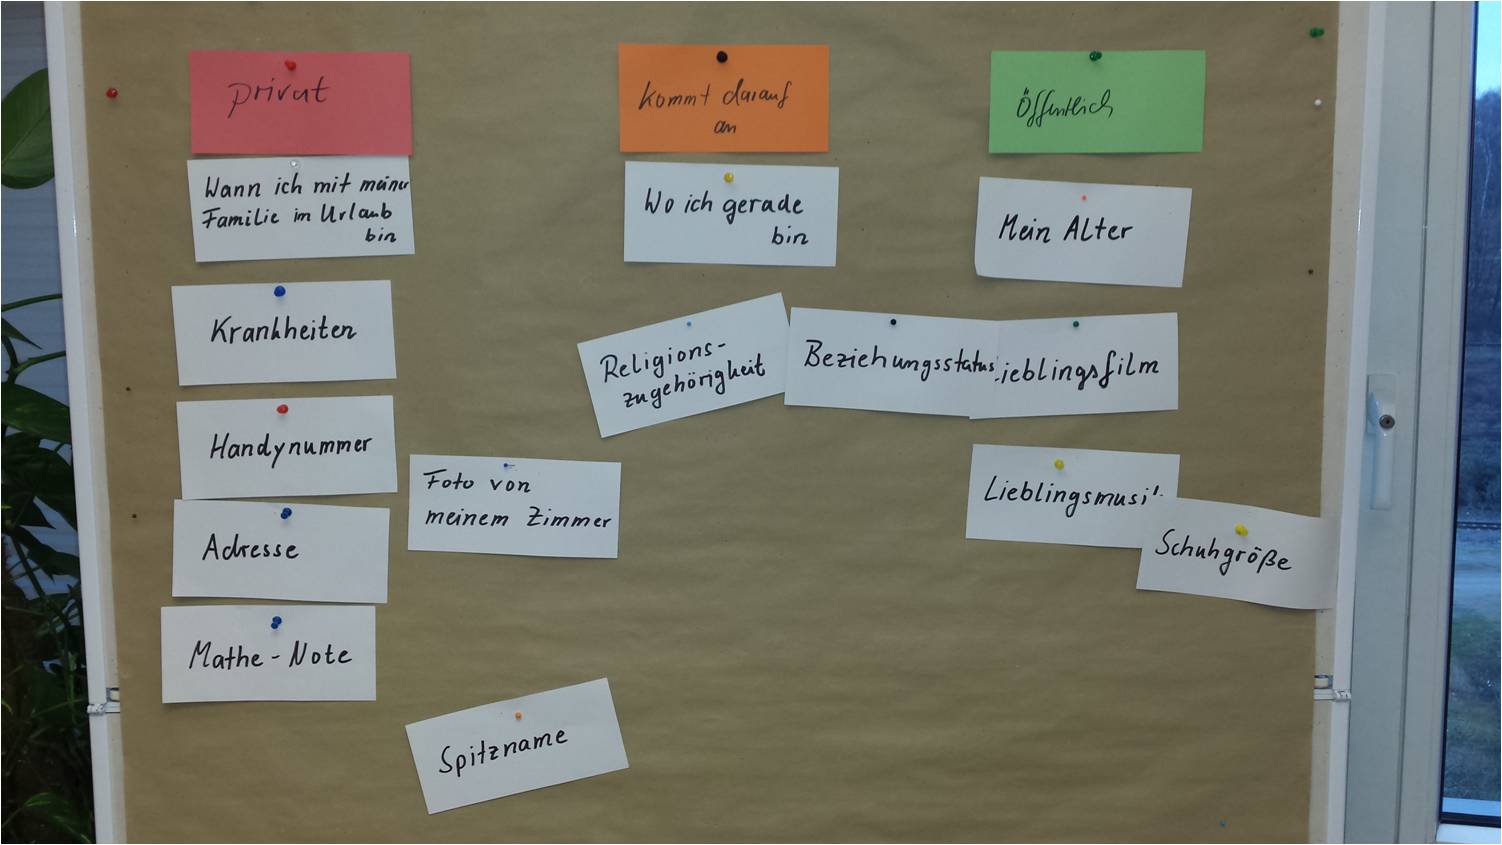 privat
Wann ich mit meiner
Familie im Urlaub
bin
Krankheiten
Handynummer
Adresse
Mathe-Note
Foto von
meinem Zimmer
Spitzname
kommt darauf
an
Wo ich gerade
bin
Religions-
zugehörigkeit
Beziehungsstatus
Öffentlich
Mein Alter
ieblingsfilm
Lieblingsmusi
Schuhgröße